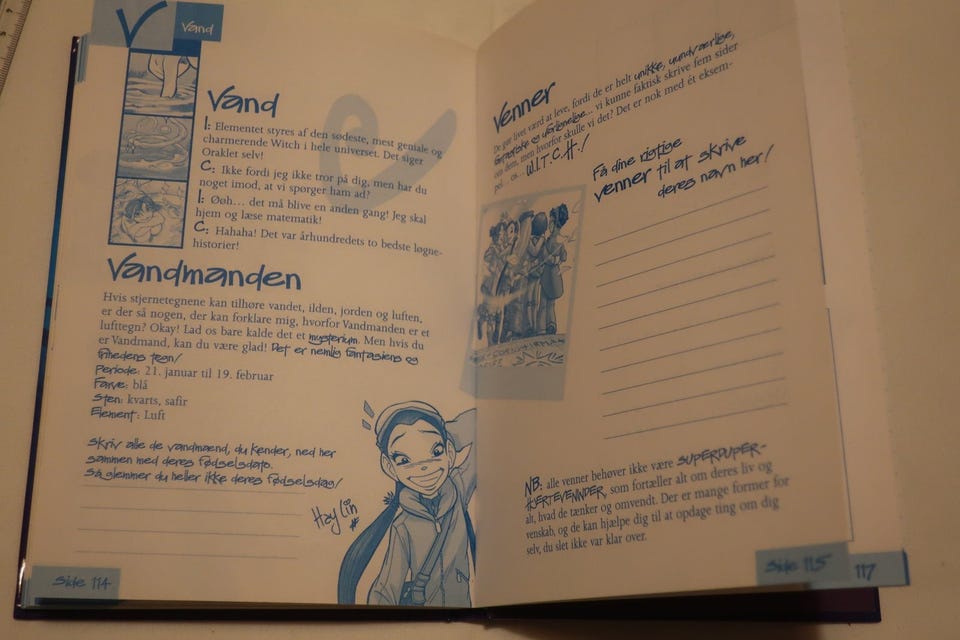 V
Vand
Vand
I: Elementet styres af den sødeste, mest geniale og
charmerende Witch i hele universet. Det siger
Oraklet selv!
C: Ikke fordi jeg ikke tror på dig, men har du
noget imod, at vi spørger ham ad?
I: Øøh... det må blive en anden gang! Jeg skal
hjem og læse matematik!
C: Hahaha! Det var århundredets to bedste løgne-
historier!
Vandmanden
Hvis stjernetegnene kan tilhøre vandet, ilden, jorden og luften,
er der så nogen, der kan forklare mig, hvorfor Vandmanden er et
lufttegn? Okay! Lad os bare kalde det et mysterium. Men hvis du
er Vandmand, kan du være glad! Det er nemlig fantasiens og
frihedens tegn!
Periode: 21. januar til 19. februar
Farve: blå
Sten: kvarts, safir
Element: Luft
Skriv alle de vandmænd, du kender, ned her
sammen med deres fødselsdato.
Så glemmer du heller ikke deres fødselsdag!
Hay Lin
Side 114
Venner
De gør livet værd at leve, fordi de er helt unikke, uundværlige,
fantastiske og uforlignelige... vi kunne faktisk skrive fem sider
om dem, men hvorfor skulle vi det? Det er nok med ét eksem-
pel... os... W.I.T.C.H.!
Få dine rigtige
venner til at skrive
deres navn her!
NB: alle venner behøver ikke være SUPERDUPER-
HJERTEVENINDER, som fortæller alt om deres liv og
alt, hvad de tænker og omvendt. Der er mange former for
venskab, og de kan hjælpe dig til at opdage ting om dig
selv, du slet ikke var klar over.
Side 115
117